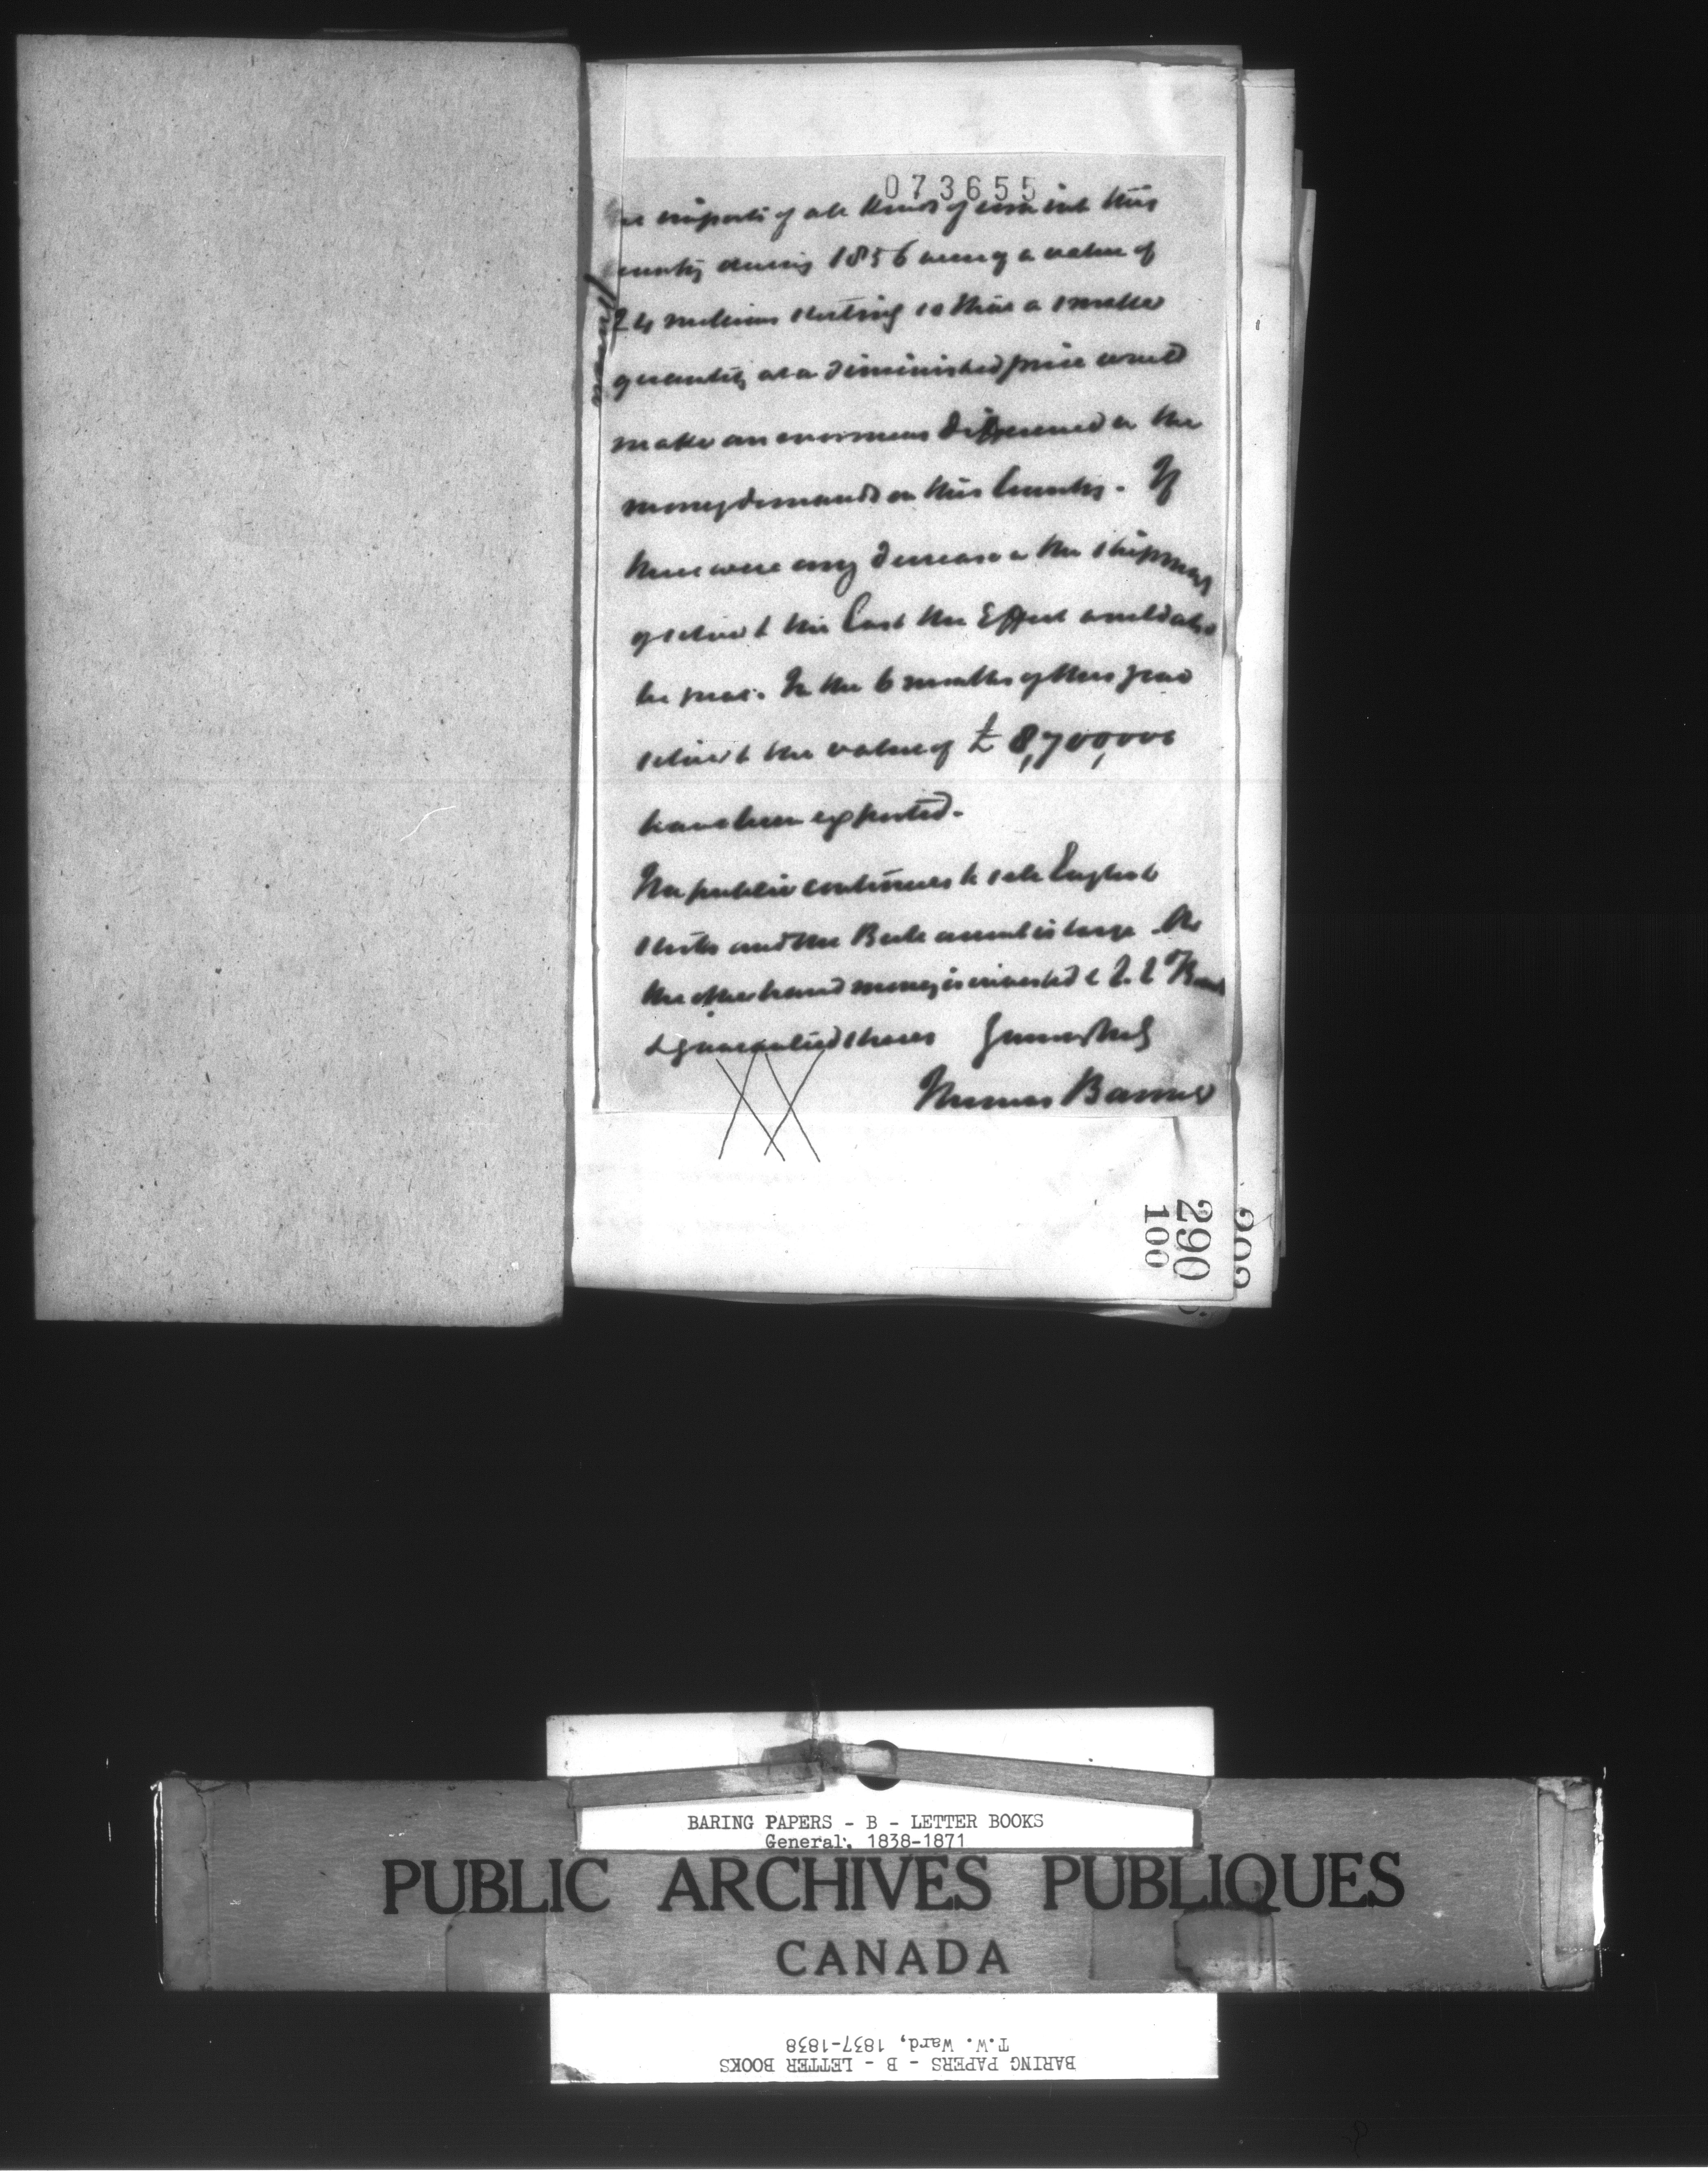 073655
the imports of all kinds of corn into this
country during 1856 were of a value of
24 millions sterling so that a smaller
quantity at a diminished price would
make an enormous difference in the
money demands on this Country. If
there were any decrease in the shipments
of silver to the East the Effect would also
be great. In the 6 months of this year
silver to the value of £ 8,700,000
have been exported.
The public continues to sell English
stocks and the account is large. On
the other hand money is invested
& guaranteed shares Yours truly
Thomas Baring
290
100
BARING PAPERS - B - LETTER BOOKS
General, 1838-1871
PUBLIC ARCHIVES PUBLIQUES
CANADA
T.W. Ward, 1837-1838
BARING PAPERS - B - LETTER BOOKS